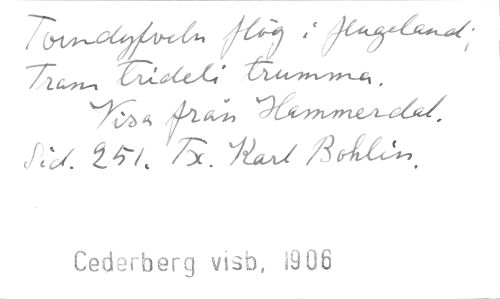 Torndyfveln flög i flugeland;
Tram trideli trumma.
Visa från Hammerdal.
Sid. 251. Tx. Karl Bohlin.
Cederberg visb, 1906